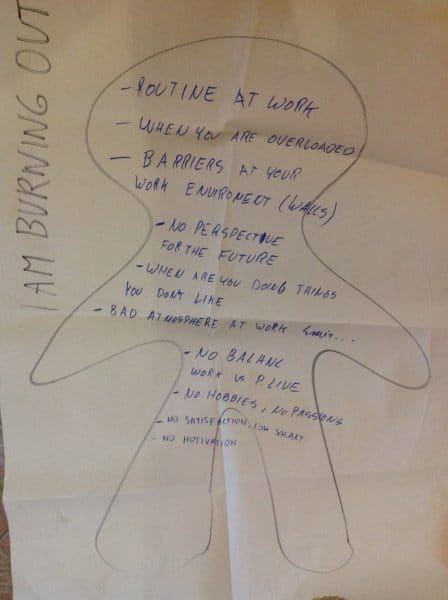 I AM BURNING OUT
- ROUTINE AT WORK
- WHEN YOU ARE OVERLOADED
- BARRIERS AT YOUR
WORK ENVIROMENT (WALLS)
- NO PERSPECTIVE
FOR THE FUTURE
- WHEN ARE YOU DOING THINGS
YOU DON'T LIKE
- BAD ATMOSPHERE AT WORK
- NO BALANC
WORK vs P. LIVE
- NO HOBBIES, NO PASSIONS
- NO SATISFACTION, LOW SALARY
- NO MOTIVATION